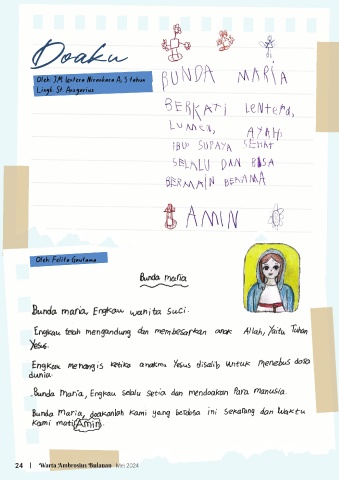 Doaku
Oleh: J.M Lentera Niraskara A, 5 tahun
Lingk. St. Ansgarius
BUNDA MARIA
BERKATI LENTERA,
LUMEN, AYAH,
IBU SUPAYA SEHAT
SELALU DAN BISA
BERMAIN BERAMA
AMIN
Oleh Felita Gautama
Bunda maria
Bunda maria, Engkau wanita suci.
Engkau telah mengandung dan membesarkan anak Allah, Yaitu Tuhan
Yesus.
Engkau menangis ketika anakmu Yesus disalib untuk menebus dosa
dunia.
Bunda Maria, Engkau selalu setia dan mendoakan Para manusia.
Bunda Maria, doakanlah kami yang berdosa ini sekarang dan waktu
kami mati Amin
24 | Warta Ambrosius Bulanan Mei 2024